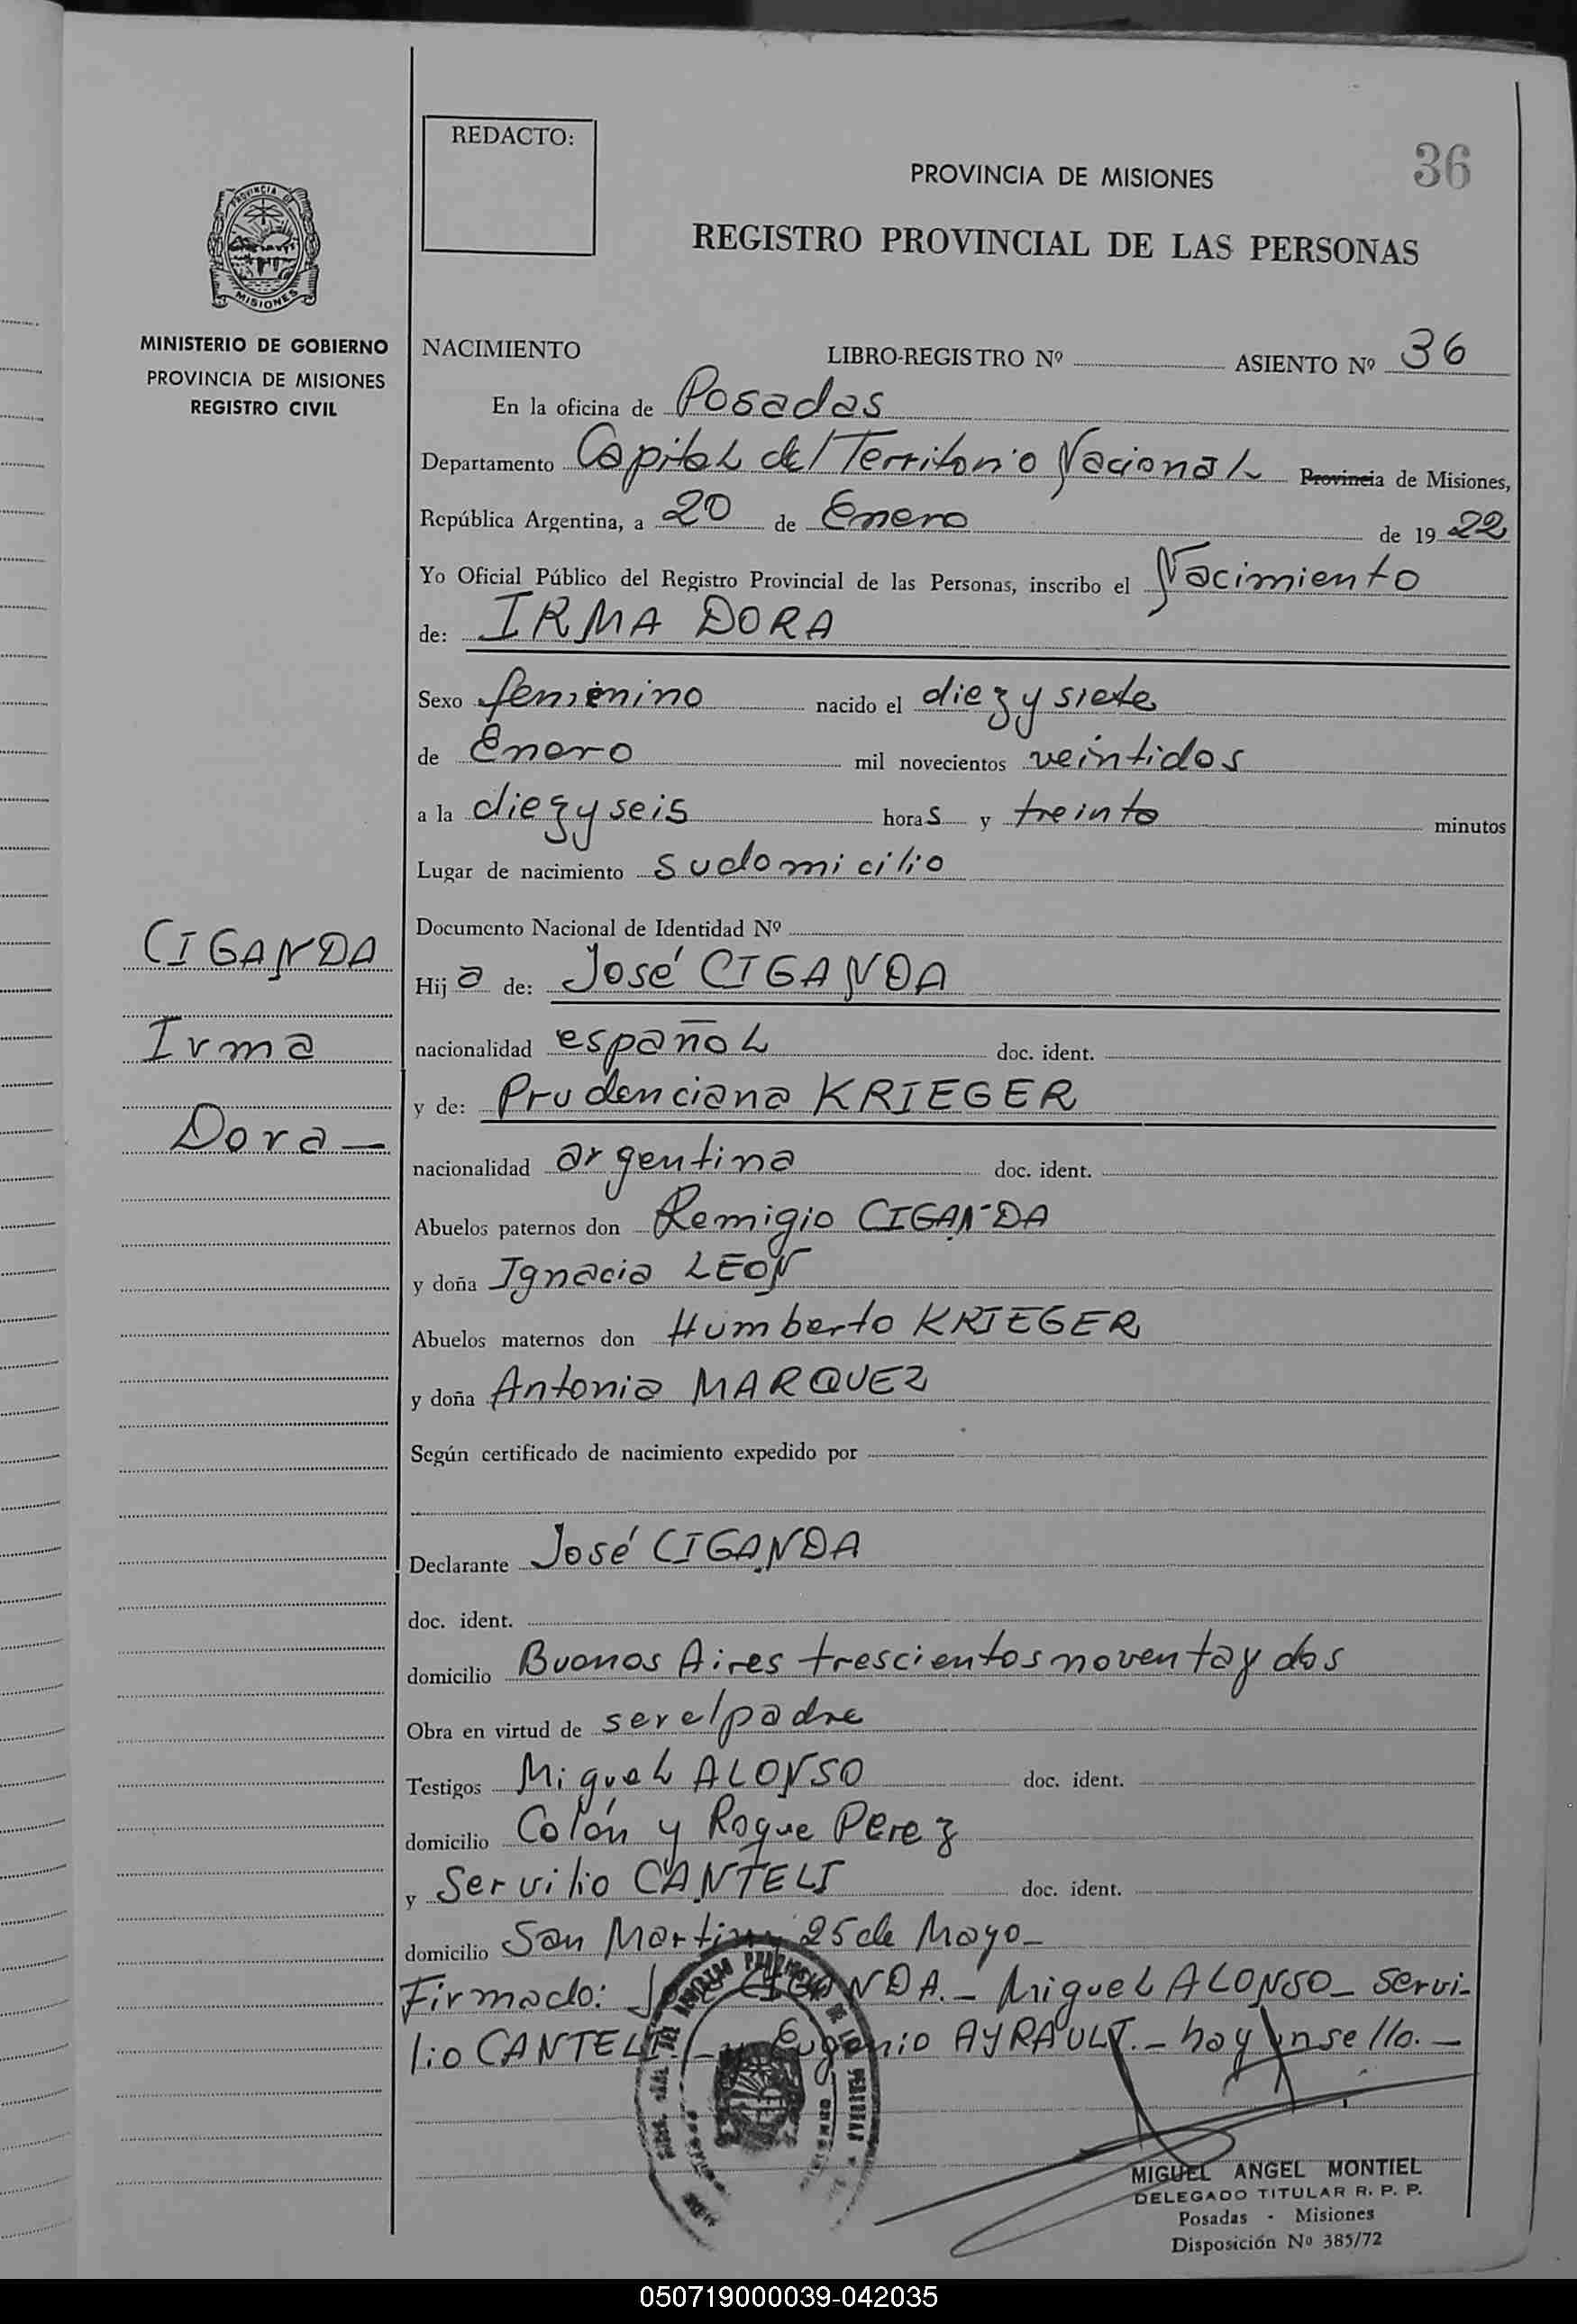 REDACTO:
36
PROVINCIA DE MISIONES
REGISTRO PROVINCIAL DE LAS PERSONAS
PROVINCIA DE
MISIONES
MINISTERIO DE GOBIERNO
PROVINCIA DE MISIONES
REGISTRO CIVIL
NACIMIENTO LIBRO-REGISTRO Nº ASIENTO Nº 36
En la oficina de Posadas
Departamento Capital del Territorio Nacional Provincia de Misiones,
República Argentina, a 20 de Enero de 1922
Yo Oficial Público del Registro Provincial de las Personas, inscribo el Nacimiento
de: IRMA DORA
Sexo femenino nacido el diez y siete
de Enero mil novecientos veintidos
a la diez y seis horas y treinta minutos
Lugar de nacimiento su domicilio
Documento Nacional de Identidad Nº
CIGANDA
Irma
Dora—
Hija de: José CIGANDA
nacionalidad español doc. ident.
y de: Prudenciana KRIEGER
nacionalidad argentina doc. ident.
Abuelos paternos don Remigio CIGANDA
y doña Ignacia LEON
Abuelos maternos don Humberto KRIEGER
y doña Antonia MARQUEZ
Según certificado de nacimiento expedido por
Declarante José CIGANDA
doc. ident.
domicilio Buenos Aires trescientos noventa y dos
Obra en virtud de ser el padre
Testigos Miguel ALONSO doc. ident.
domicilio Colón y Roque Perez
y Servilio CANTELI doc. ident.
domicilio San Martin y 25 de Mayo_
Firmado: José CIGANDA._ Miguel ALONSO_ Servi-
lio CANTELI._ Eugenio AYRAULT._ hay un sello._
MIGUEL ANGEL MONTIEL
DELEGADO TITULAR R. P. P.
Posadas - Misiones
Disposición Nº 385/72
050719000039-042035